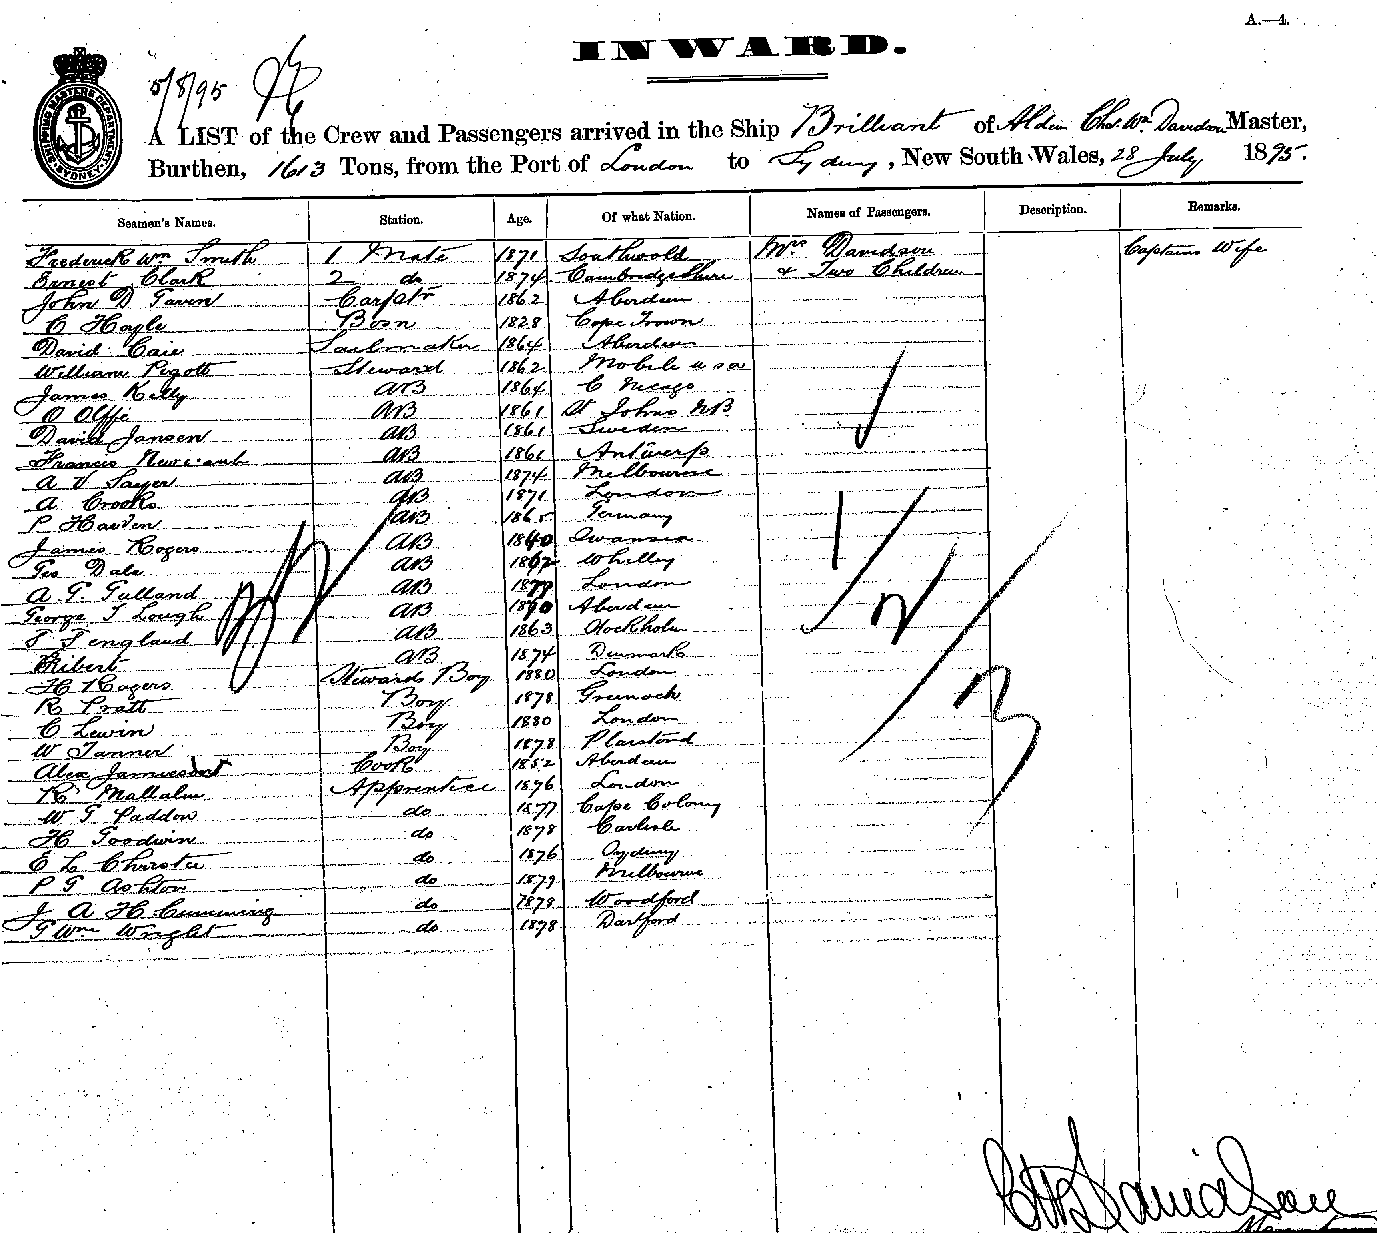 A.—4.
INWARD.
SHIPPING MASTERS DEPARTMENT SYDNEY
5/8/95
A LIST of the Crew and Passengers arrived in the Ship Brilliant of Chas. Wm. Davidson Master,
Burthen, 1613 Tons, from the Port of London to Sydney, New South Wales, 28 July 1895.
Seamen's Names. Station. Age. Of what Nation. Names of Passengers. Description. Remarks.
Frederick Wm Smith 1 Mate 1871 Southwold Mrs Davidson Captains Wife
Ernest Clark 2 do 1874 Cambridgeshire & Two Children
John D 1862 Aberdeen
C Hoyle Bosn 1828 Cape Town
David Caie Sailmaker 1864 Aberdeen
William Pigott Steward 1862 Mobile u s a
James Kelly AB 1864 Chicago
O AB 1861 St Johns NB
David Jansen AB 1861 Sweden
Francis AB 1861 Antwerp
A V Sayer AB 1874 Melbourne
A Crooks AB 1871 London
P AB Germany
James Rogers AB 1840 Swansea
Geo Dale AB Whitby
A G Gulland AB London
George T Lough AB Aberdeen
AB 1863 Stockholm
AB 1874 Denmark
H Rogers Stewards Boy 1880 London
R Pratt Boy 1878 Greenock
C Lewin Boy 1880 London
W Tanner Boy 1878
Alex Cook 1852 Aberdeen
R Apprentice 1876 London
W G Paddon do 1877 Cape Colony
H Goodwin do 1878 Carlisle
E L Christie do 1876 Sydney
P G Ashton do 1879 Melbourne
J A H Cumming do 1878 Woodford
G Wm Wright do 1878 Dartford
1/
2/
3
C W Davidson